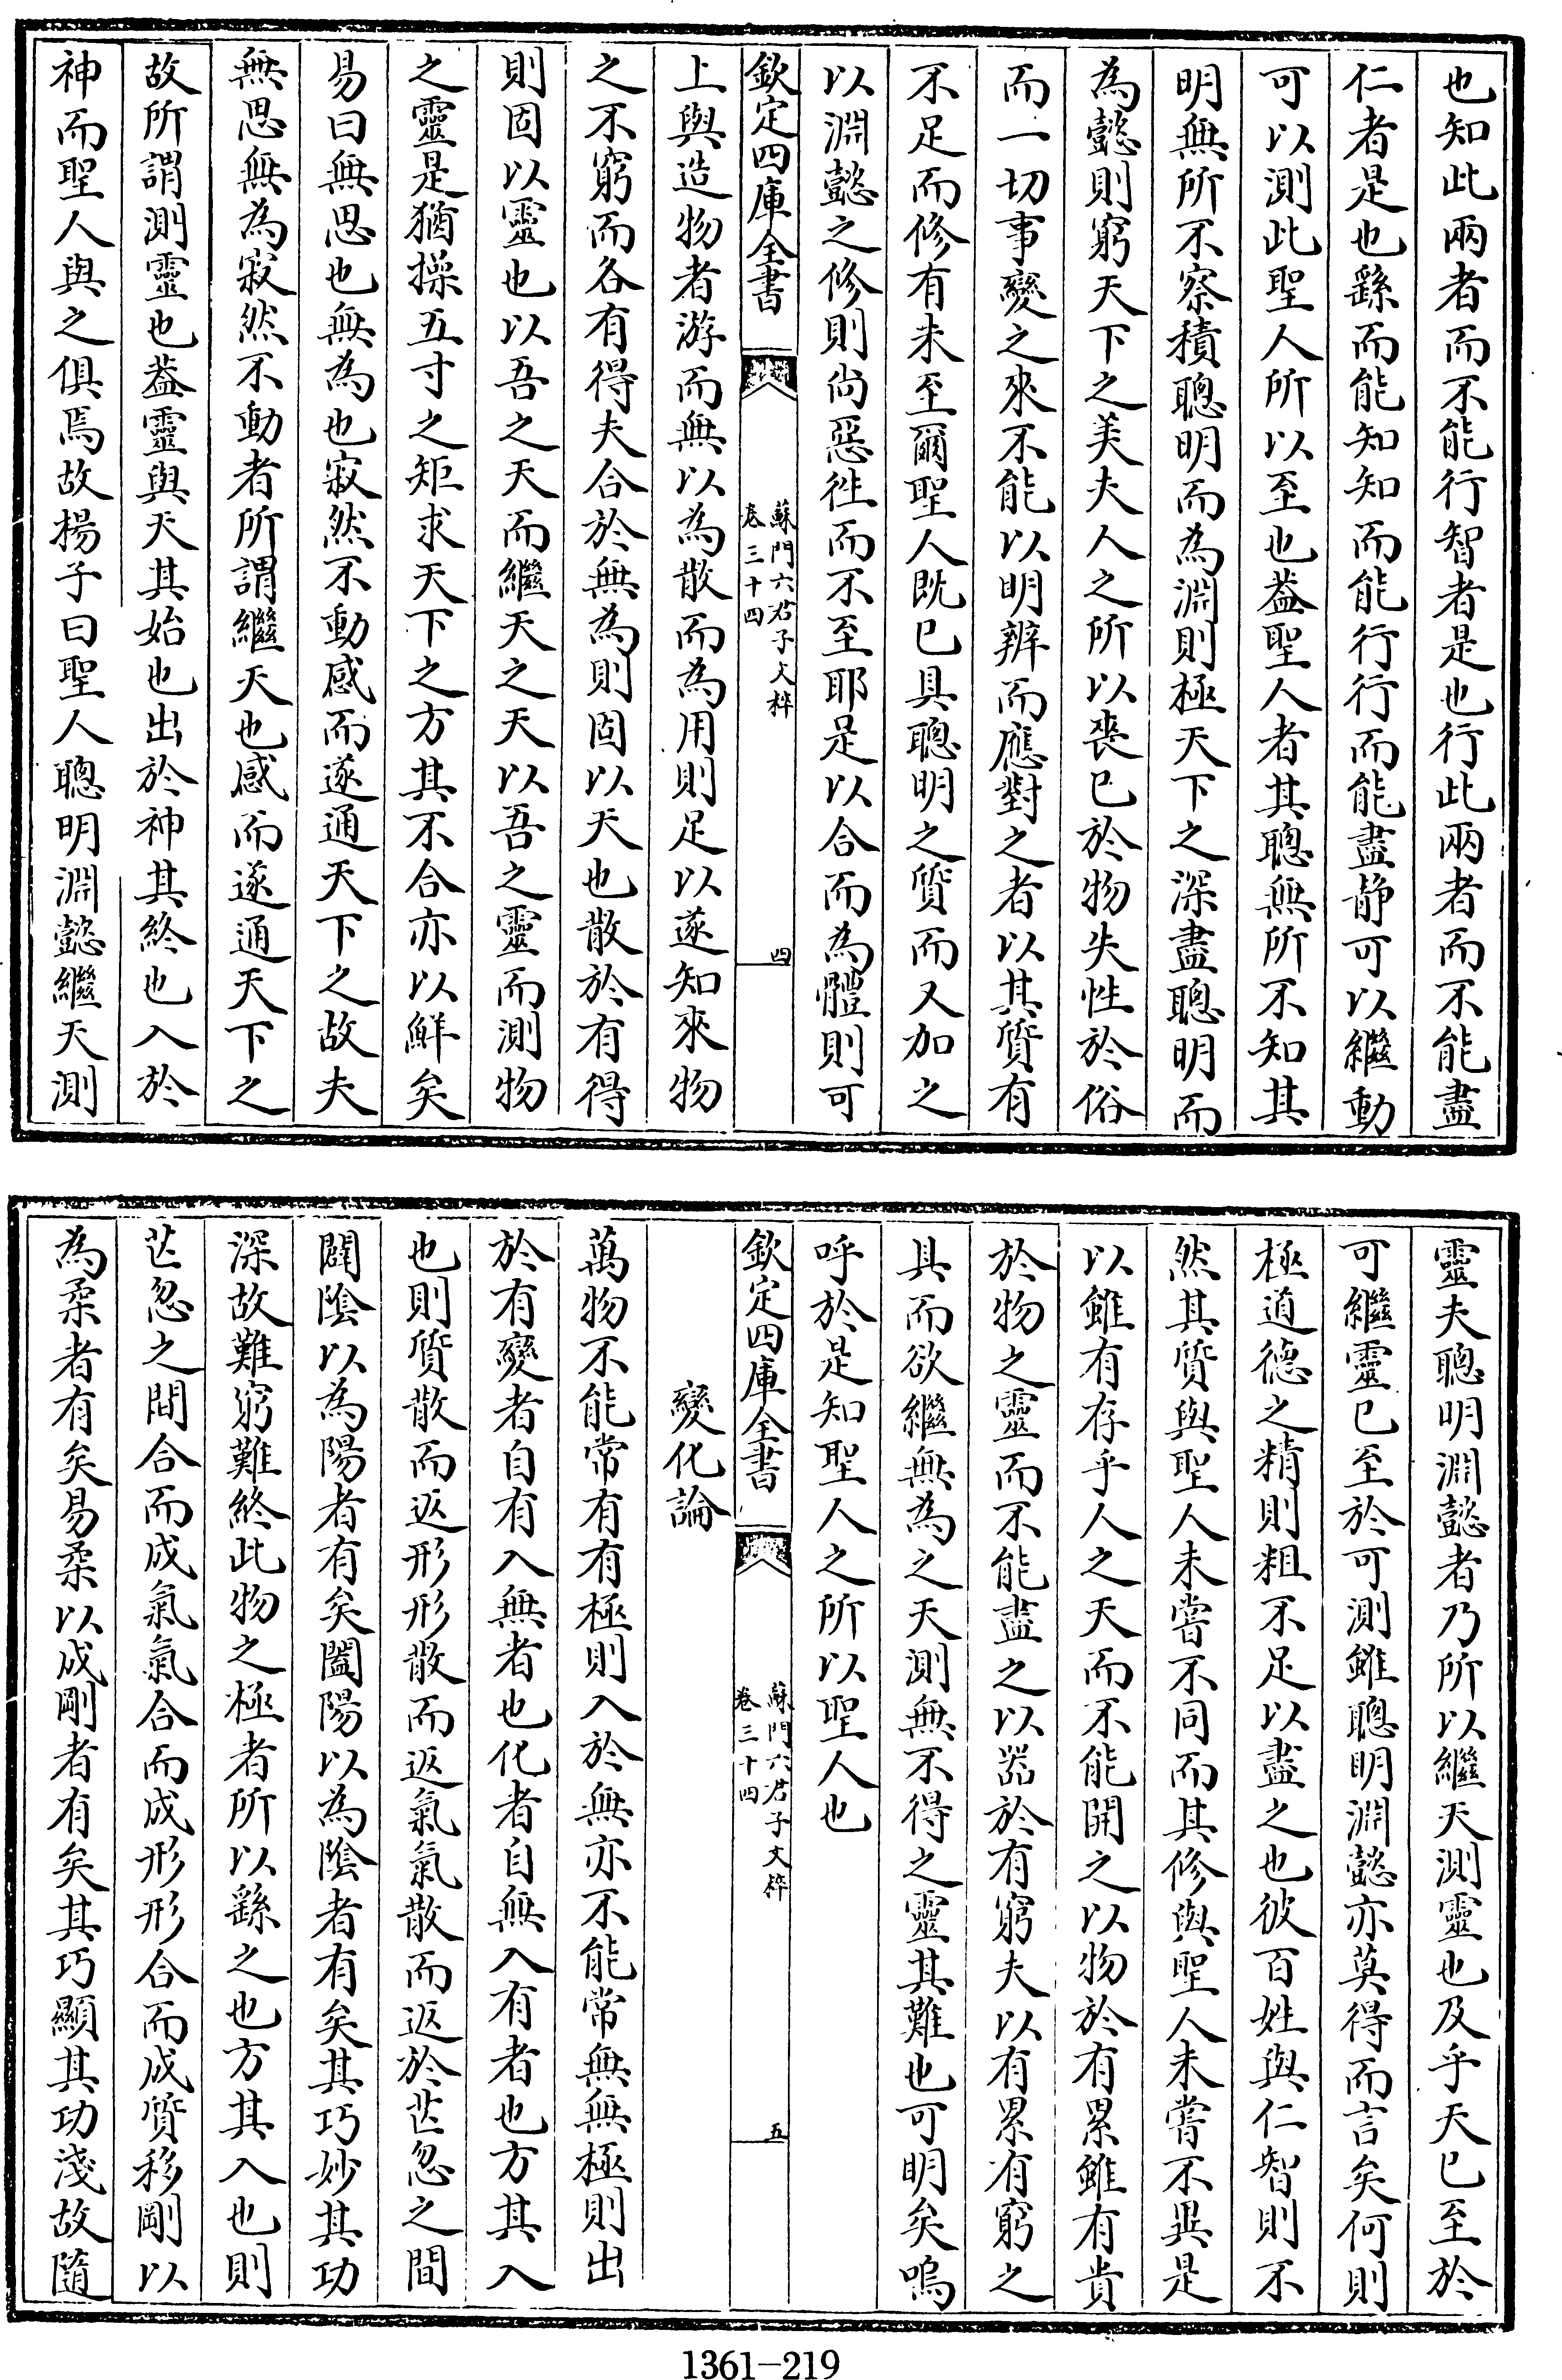 也知此兩者而不能行智者是也行此兩者而不能盡
仁者是也繇而能知知而能行行而能盡静可以繼動
可以測此聖人所以至也葢聖人者其聰無所不知其
明無所不察積聰明而為淵則極天下之深盡聰明而
為懿則窮天下之美夫人之所以喪已於物失性於俗
而一切事變之來不能以明辨而應對之者以其質有
不足而修有未至爾聖人既已具聰明之質而又加之
以淵懿之修則尚惡徃而不至耶是以合而為體則可
欽定四庫全書
蘇門六君子文粹
卷三十四
四
上與造物者游而無以為散而為用則足以遂知來物
之不窮而各有得夫合於無為則固以天也散於有得
則固以靈也以吾之天而繼天之天以吾之靈而測物
之靈是猶操五寸之矩求天下之方其不合亦以鮮矣
易曰無思也無為也寂然不動感而遂通天下之故夫
無思無為寂然不動者所謂繼天也感而遂通天下之
故所謂測靈也葢靈與天其始也出於神其終也入於
神而聖人與之俱焉故楊子曰聖人聰明淵懿繼天測
靈夫聰明淵懿者乃所以繼天測靈也及乎天已至於
可繼靈已至於可測雖聰明淵懿亦莫得而言矣何則
極道德之精則粗不足以盡之也彼百姓與仁智則不
然其質與聖人未嘗不同而其修與聖人未嘗不異是
以雖有存乎人之天而不能開之以物於有累雖有貴
於物之靈而不能盡之以器於有窮夫以有累有窮之
具而欲繼無為之天測無不得之靈其難也可明矣嗚
呼於是知聖人之所以聖人也
欽定四庫全書
蘇門六君子文粹
卷三十四
五
變化論
萬物不能常有有極則入於無亦不能常無無極則出
於有變者自有入無者也化者自無入有者也方其入
也則質散而返形形散而返氣氣散而返於芒忽之間
闢陰以為陽者有矣闔陽以為陰者有矣其巧妙其功
深故難窮難終此物之極者所以繇之也方其入也則
芒忽之間合而成氣氣合而成形形合而成質移剛以
為柔者有矣易柔以成剛者有矣其巧顯其功淺故隨
1361-219